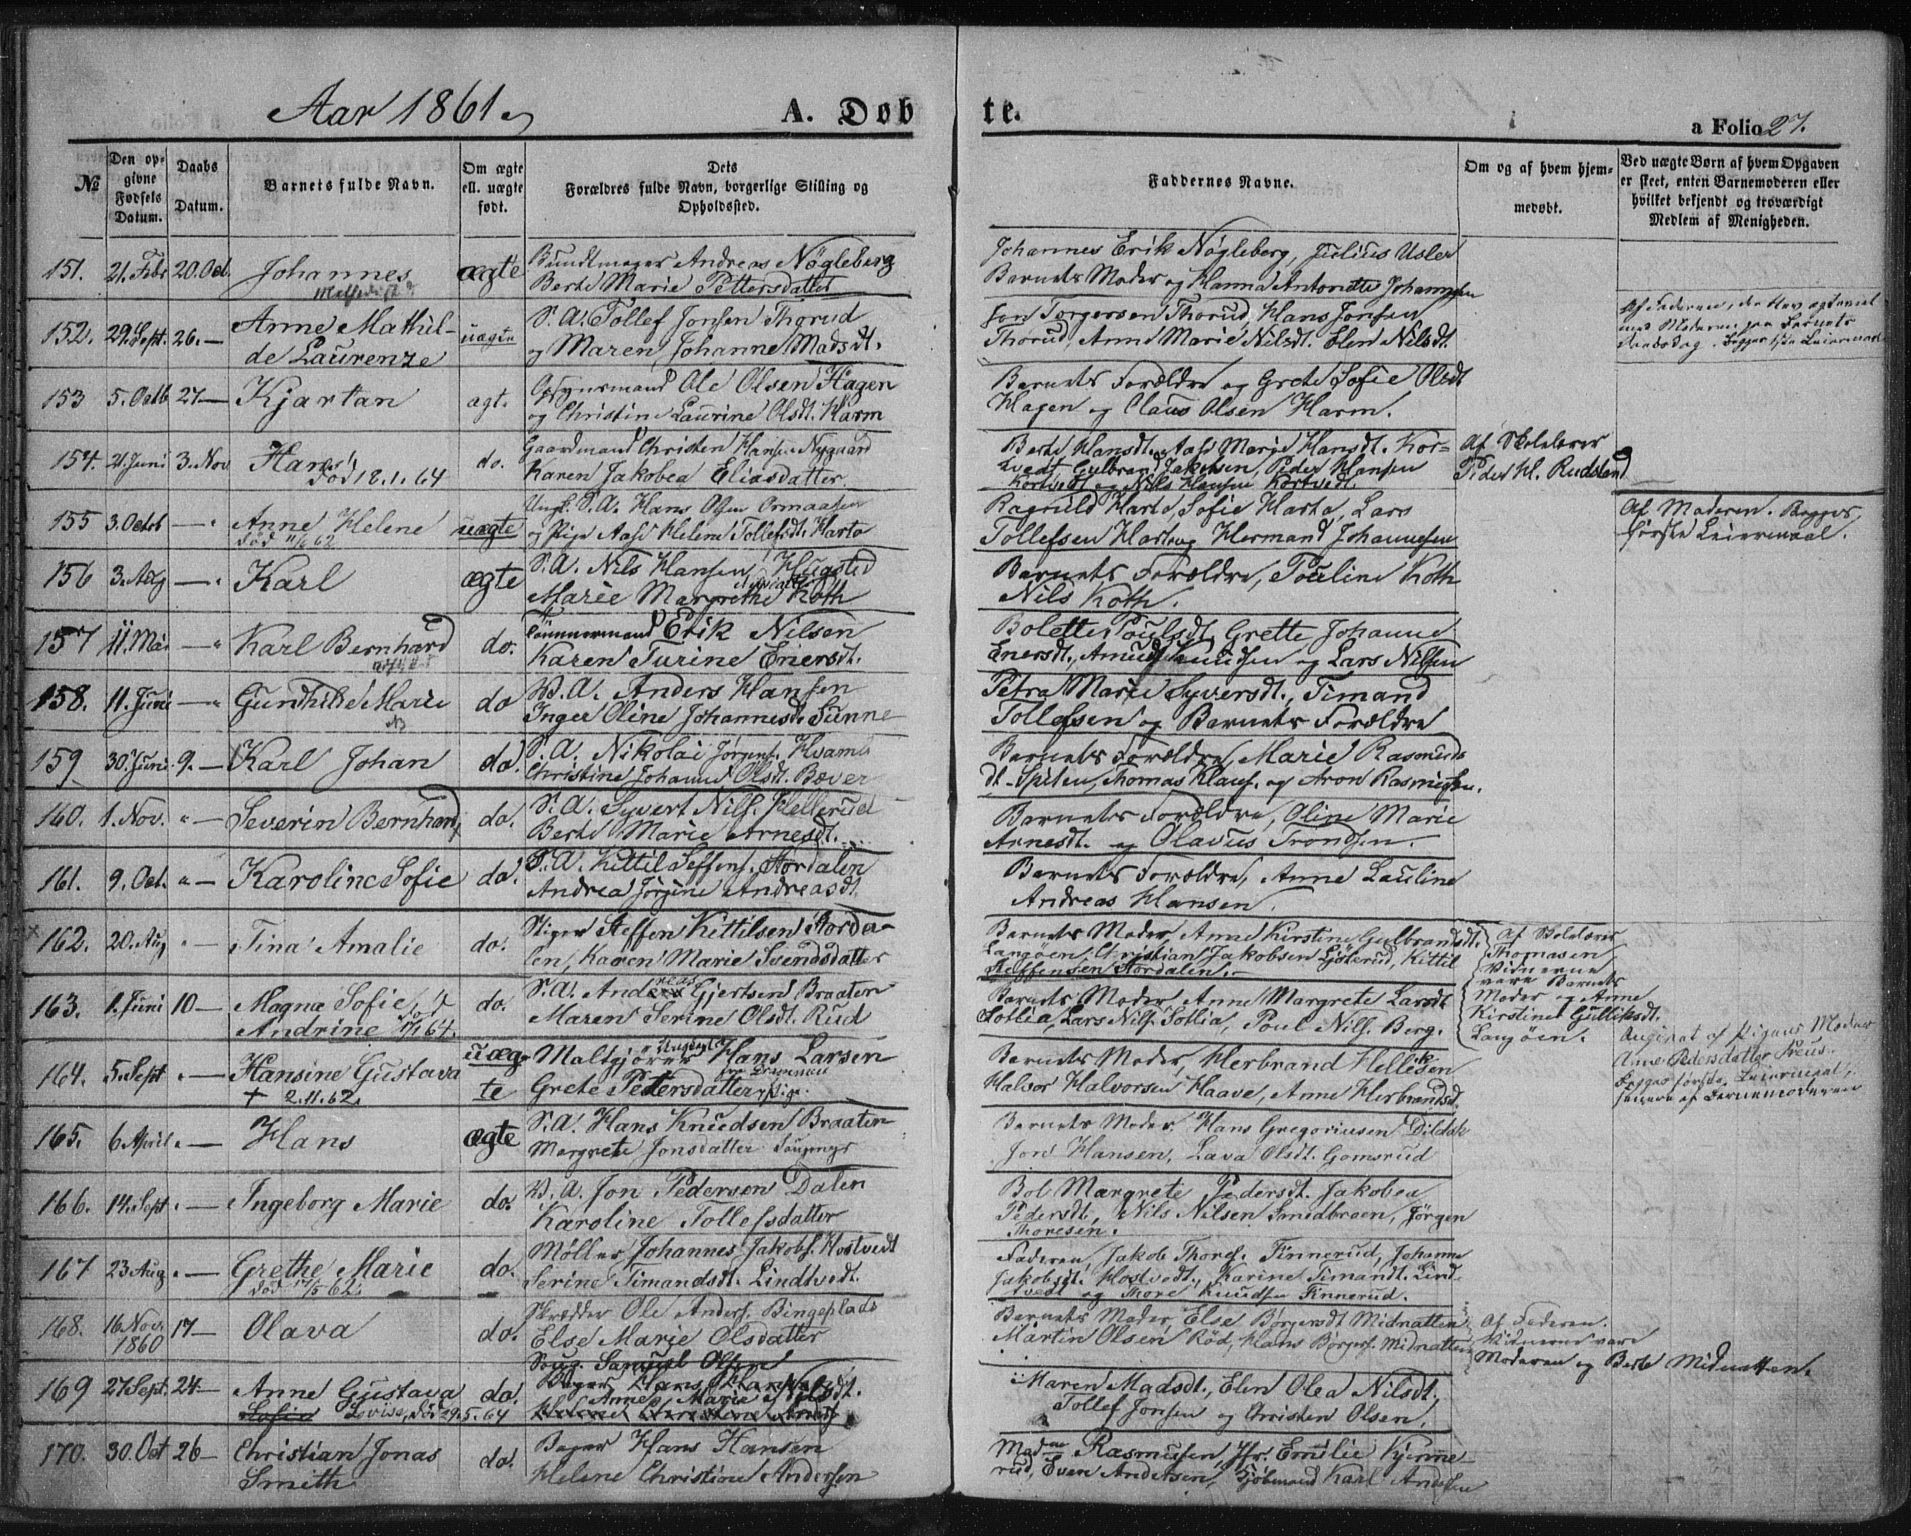 Aar 1861.
A. Døb
te.
a Folio 27.
№
Den op-
givne
Fødsels
Datum.
Daabs
Datum.
Barnets fulde Navn.
Om ægte
ell. uægte
født.
Dets
Forældres fulde Navn, borgerlige Stilling og
Opholdssted.
Faddernes Navne.
Om og af hvem hjem-
medøbt.
Ved uægte Børn af hvem Opgaven
er skeet, enten Barnemoderen eller
hvilket bekjendt og troværdigt
Medlem af Menigheden.
151. 21. Febr 20. Oct. Johannes ægte Bundtmager Andreas Nøgleberg
Berte Marie Pettersdatter
Johannes Erik Nøgleberg, Julius Usler
Barnets Moder og Hanna Antonette Johannsen
152. 29. Sept. 26. — Anne Mathil-
de Laurenze
uægte
S. A. Tollef Jonsen Thorud
og Maren Johanne Madsdt.
Jon Torgersen Thorud, Hans Jonsen
Thorud, Anne Marie Nilsdt. Elen Nilsdt.
153 5. Octb 27 — Kjartan ægt.
Opsynsmand Ole Olsen Hagen
og Christine Laurine Olsdt. Harm
Barnets Forældre og Grete Sofie Olsdt
Hagen og Claus Olsen Harm.
154. 21. Juni 3. Nov Hans
Død 18. 1. 64
do.
Gaardmand Christen Hansen Nygaard
Karen Jakobea Eliasdatter.
Berte Hansdt., Aase Marie Hansdt. Kor-
tvedt, Gulbrand Jakobsen, Peder Hansen
Kortvedt og Nils Hansen Kortvedt.
Af Skolelærer
Peder H. Rudsland
155 3. Octob — " Anne Helene
død 11/6 62
uægte
Ungk. S. A. Hans Olsen Ormaasen
og Pige Aase Helene Tollefsdt. Harto
Ragnild Harto, Sofie Harto, Lars
Tollefsen Harto og Hermand Johannesen
Af Moderen. Begges
første Leiermaal.
156 3. Aug — " Karl ægte
S. A. Nils Hansen Hugsted
Marie Margrethe Koth
Barnets Forældre, Pouline Koth
Nils Koth.
157 11. Mai " Karl Bernhard do.
Tømmermand Erik Nilsen
Karen Turine Enersdt.
Bolette Poulsdt. Grette Johanne
Enersdt., Amund Knudsen og Lars Nilsen
158. 11. Juni — " Gunhilde Marie do
B. A. Anders Hansen
Inger Oline Johannesdt. Sunne
Petra Marie Syversdt., Timand
Tollefsen og Barnets Forældre
159 30. Juni 9. — Karl Johan do.
S. A. Nikolai Jørgens. Hvamb
Christine Johanne Olsdt. Bæver
Barnets Forældre, Marie Rasmuds
dt. Spiten, Thomas Klaus. og Aron Rasmusen.
160. 1. Nov. " — Severin Bernhard, do.
S. A. Syvert Nils. Hellerud
Berte Marie Arnesdt.
Barnets Forældre, Oline Marie
Arnesdt. og Olavus Trondsen.
161. 9. Oct. " — Karoline Sofie do.
S. A. Kittil Steffens. Stordalen
Andrea Jørgine Andreasdt.
Barnets Forældre, Anne Lauline
Andreas Hansen.
162. 20. Aug " — Tina Amalie do.
Stiger Steffen Kittilsen Storda-
len, Karen Marie Svendsdatter
Barnets Moder, Anne Kirstine Gulbrandsdt.
Langøen, Christian Jakobsen Gjøterud, Kittil
Steffensen Stordalen.
Af Skolelærer
Thomasen
Vidnerne
vare Barnets
Moder og Anne
Kirstine Gulliksdt.
Langøen.
163. 1. Juni 10 — Magna Sofie
Andrine
do.
S. A. Andreas Gjertsen Braaten
Maren Serine Olsdt. Rud
Barnets Moder, Anne Margrete Larsdt
Sotlia, Lars Nils. Sotlia, Poul Nils. Berg.
164. 5. Sept " — Hansine Gustava
+ 2. 11. 62.
uæg-
te
Maltgjører Hans Larsen
fra Drammen
Grete Pedersdatter Pige.
Barnets Moder, Herbrand Helliksen
Halvor Halvorsen Haave, Anne Herbrandsd.
Angivet af Pigens Moder
Anne Pedersdatter
Begges første Leiermaal,
senere af Barnemoderen
165. 6 April " — Hans ægte
S. A. Hans Knudsen Braaten
Margrete Jonsdatter Saugmyr
Barnets Moder, Hans Gregoriusen Dildak
Jørd Hansen, Lava Olsdt. Gomsrud
166. 14. Sept " — Ingeborg Marie do.
B. A. Jon Pedersen Dalen
Karoline Tollefsdatter
Bol Margrete Pedersdt. Jakobea
Pedersdt, Nils Nilsen Smedbroen, Jørgen
Thoresen.
167 23 Aug " — Grethe Marie
død 17/5 62.
do.
Møller Johannes Jakobs. Hostvedt
Serine Timandsdt. Lindtvedt.
Faderen, Jakob Thores. Finnerud, Johanne
Jakobsdt. Hostvedt, Karine Timandt. Lind-
tvedt og Thore Knudsen Finnerud.
168. 16 Nov.
1860
17 — Olava do.
Skredder Ole Anders. Bingeplads
Else Marie Olsdatter
Barnets Moder, Else Børgersdt Midnatten
Martin Olsen Rød, Hans Børgers. Midnatten
Af Faderen.
Vidnerne vare
Moderen og Berte Midnatten.
169 27 Sept. 24 — Anne Gustava
Sofia Lovise, død 29. 5. 64
do.
Saug. Samuel Olsen
Bager Hans Hansen
Anne Marie Nilsdt.
Helene Christine Anders
Maren Madsdt., Elen Olea Nilsdt.
Tollef Jonsen og Christen Olsen.
170. 30 Oct 26 — Christian Jonas
Smith
do.
Bager Hans Hansen
Helene Christine Andersen
Madme Rasmusen, Jfr. Emilie Kjenne-
rud, Even Andersen, Kjøbmand Karl Andersen